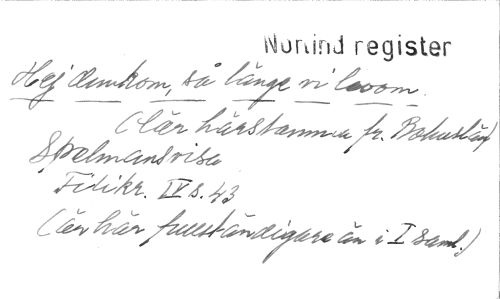 Norlind register
Hej dunkom, så länge vi levom.
(lär härstamma fr. Bohuslän)
Spelmansvisa
Fidikr. IV s. 43
(är här fullständigare än i I saml.)